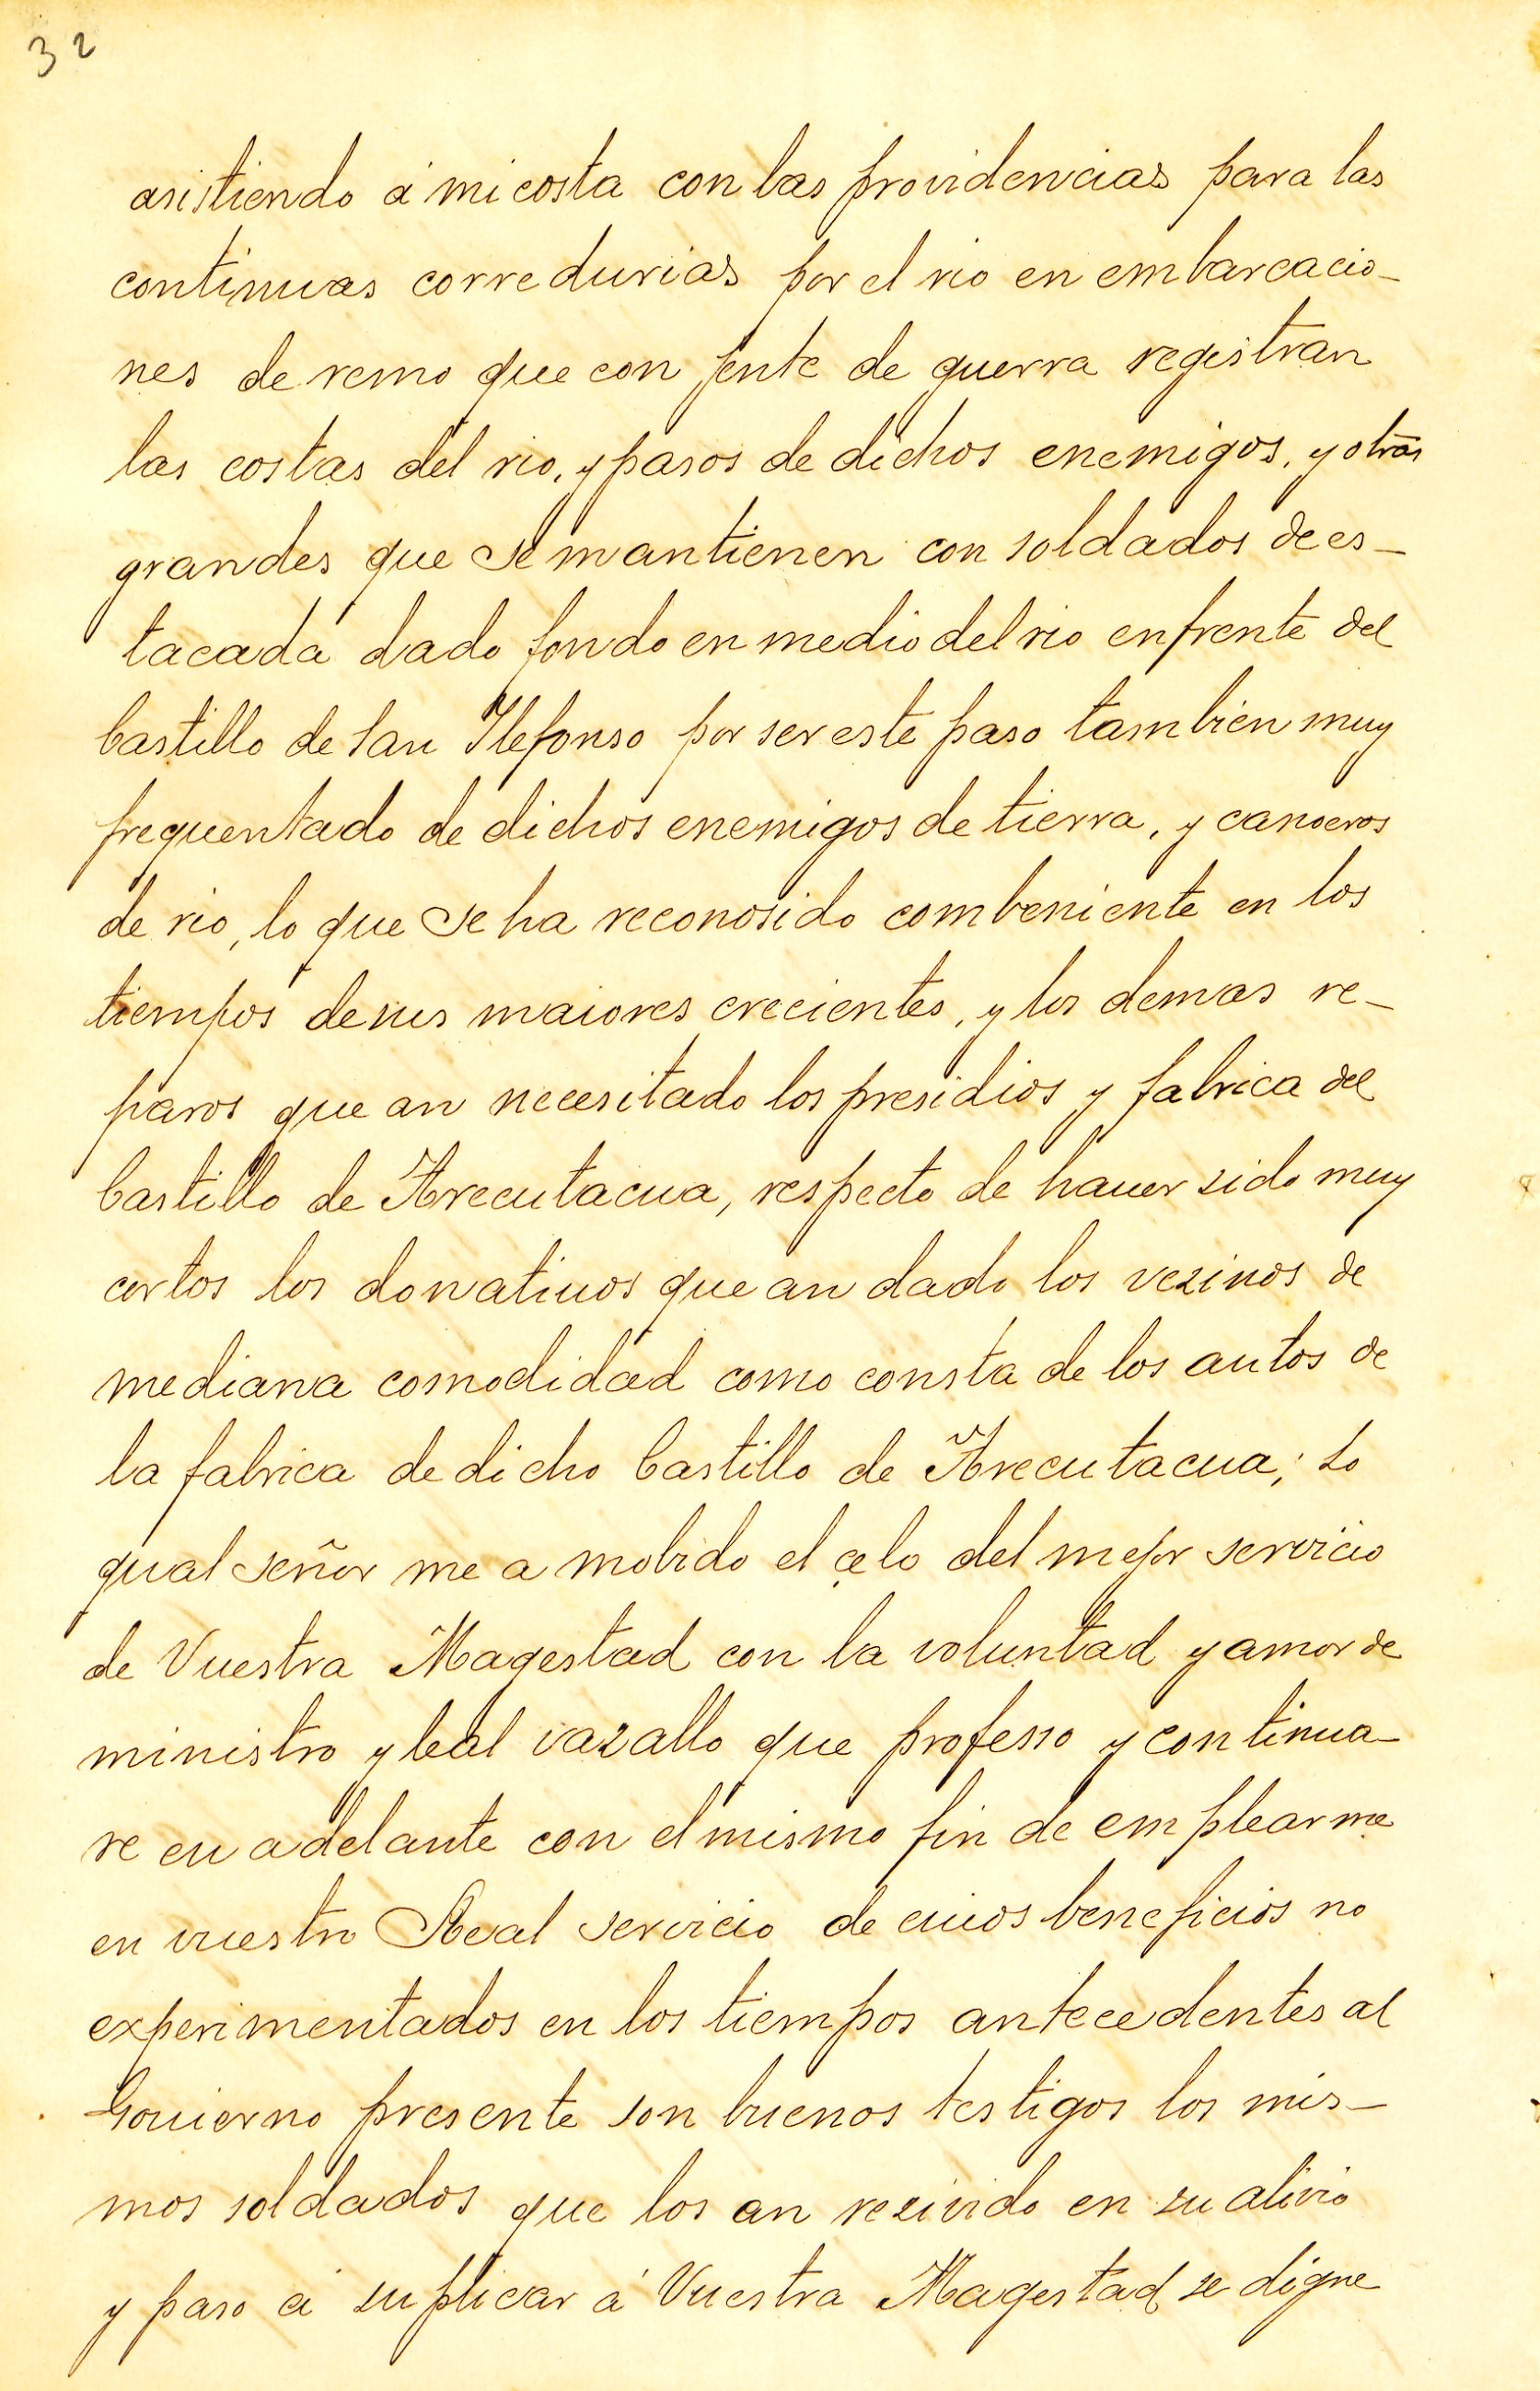 32
asistiendo á mi costa con las providencias para las
continuas corredurias por el rio en embarcacio-
nes de remo que con jente de guerra registran
las costas del rio, y pasos de dichos enemigos, y otras
grandes que se mantienen con soldados de es-
tacada dado fondo en medio del rio enfrente del
Castillo de San Ilefonso por ser este paso tambien muy
frequentado de dichos enemigos de tierra, y canoeros
de rio, lo que se ha reconosido combeniente en los
tiempos de sus maiores crecientes, y los demas re-
paros que an necesitado los presidios y fabrica del
Castillo de Arecutacua, respecto de hauer sido muy
cortos los donatiuos que an dado los vezinos de
mediana comodidad como consta de los autos de
la fabrica de dicho Castillo de Arecutacua; Lo
qual señor me a mobido el çelo del mejor servicio
de Vuestra Magestad con la voluntad y amor de
ministro y leal vazallo que professo y continua-
re en adelante con el mismo fin de emplearme
en vuestro Real servicio de cuios beneficios no
experimentados en los tiempos antecedentes al
Gouierno presente son buenos testigos los mis-
mos soldados que los an rezivido en su alivio
y paso á suplicar á Vuestra Magestad se digne